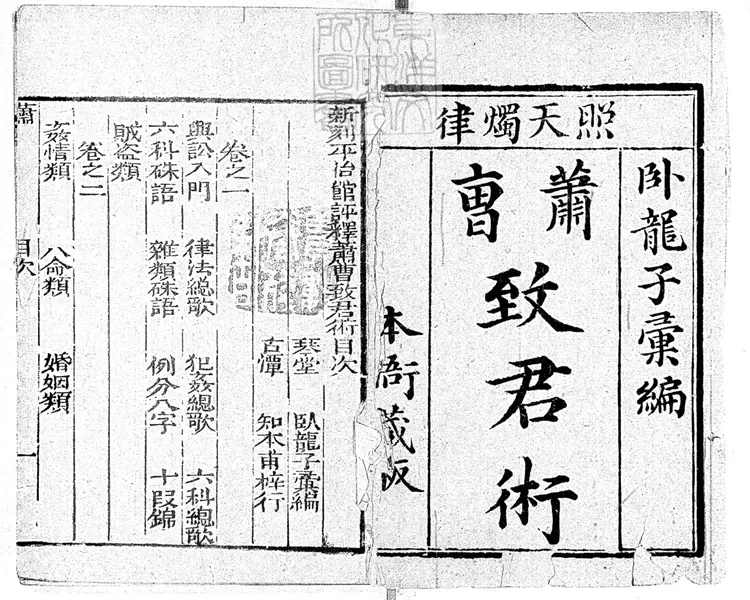 照天燭律
卧龍子彙編
蕭曺
致君術
本衙藏板
新刻平治館評釋蕭曹致君術目次
琴堂 臥龍子彙編
古潭 知本甫梓行
卷之一
興訟入門 律法總歌 犯姦總歌 六科總歌
六科硃語 雜類硃語 例分八字 十段錦
賊盗類
卷之二
姦情類 人命類 婚姻類
蕭 目次 一